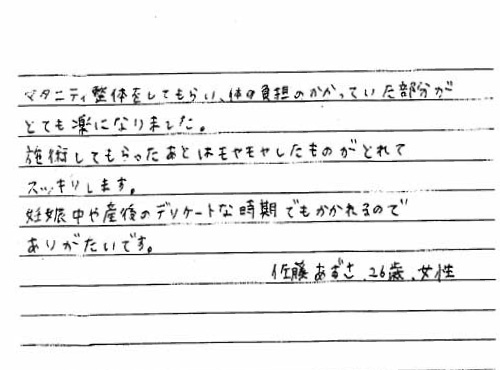 マタニティ整体をしてもらい、体の負担のかかっていた部分が
とても楽になりました。
施術してもらったあとはモヤモヤしたものがとれて
スッキリします。
妊娠中や産後のデリケートな時期でもかかれるので
ありがたいです。
佐藤あずさ、26歳、女性